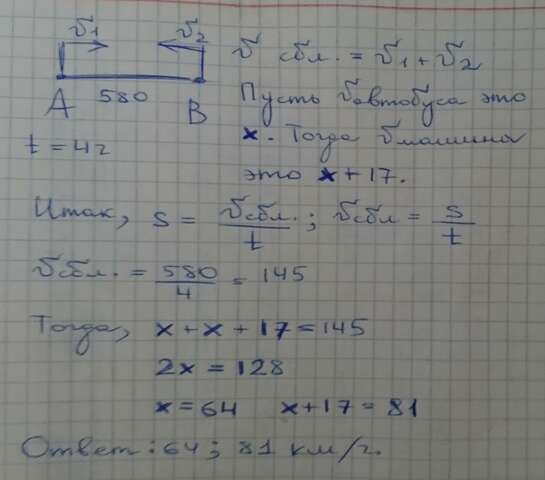 v1 v2 v сбл. = v1 + v2
A 580 B Пусть vавтобуса это
t = 4ч x. Тогда vмашины
это x + 17.
Итак, s = vсбл. / t ; vсбл = s / t
vсбл. = 580 / 4 = 145
Тогда, x + x + 17 = 145
2x = 128
x = 64 x + 17 = 81
Ответ: 64; 81 км/ч.